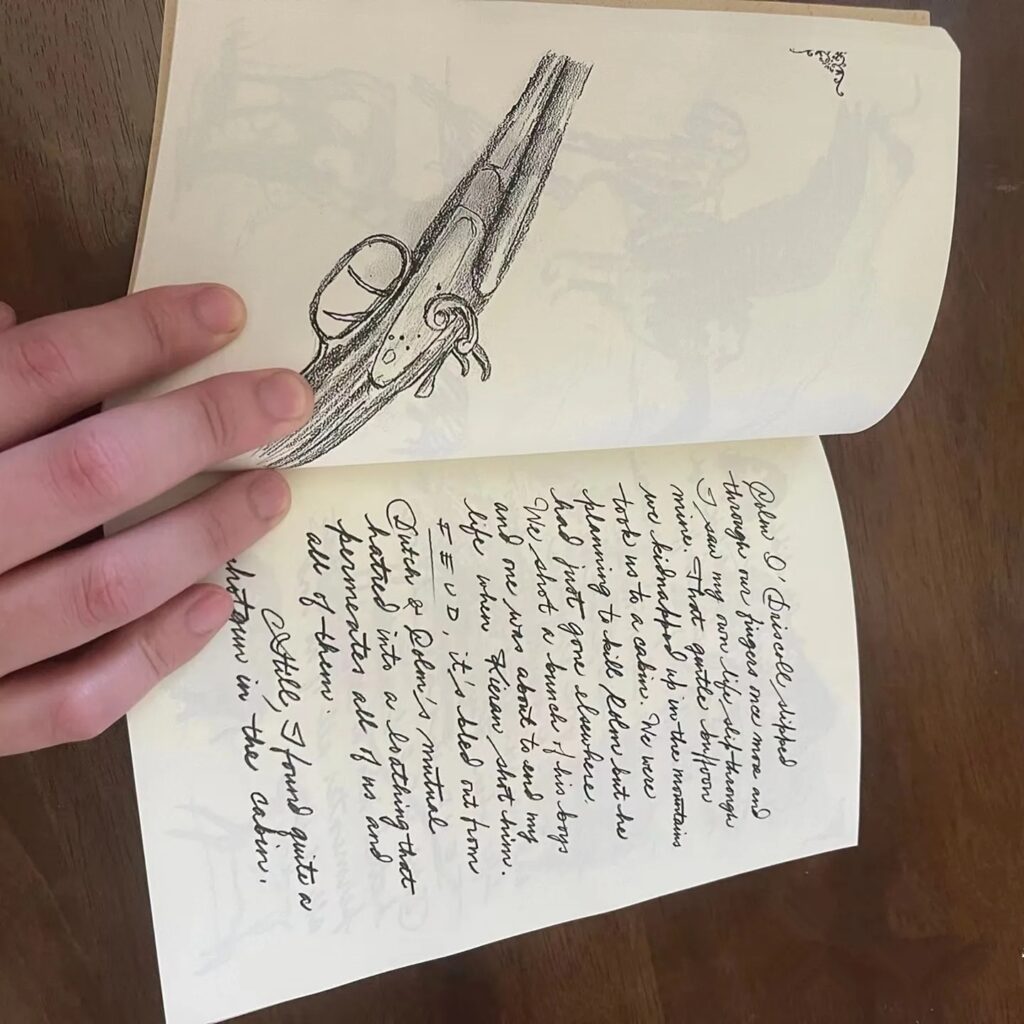 Colm O'Driscoll slipped
through our fingers once more and
I saw my own life slip through
mine. That gentle buffoon
we kidnapped up in the mountains
took us to a cabin. We were
planning to kill Colm but he
had just gone elsewhere.
We shot a bunch of his boys
and one was about to end my
life when Kieran shot him.
FEUD, it's bled out from
Dutch & Colm's mutual
hatred into a loathing that
permeates all of us and
all of them.
Still, I found quite a
shotgun in the cabin.